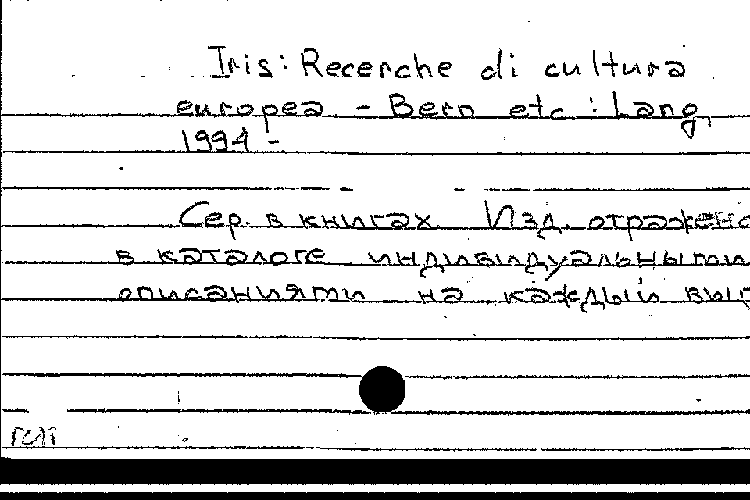 Iris: Recerche di cultura
europea - Bern etc.: Lang,
1994 -
Сер. в книгах Изд. отражено
в каталоге индивидуальными
описаниями на каждый вып